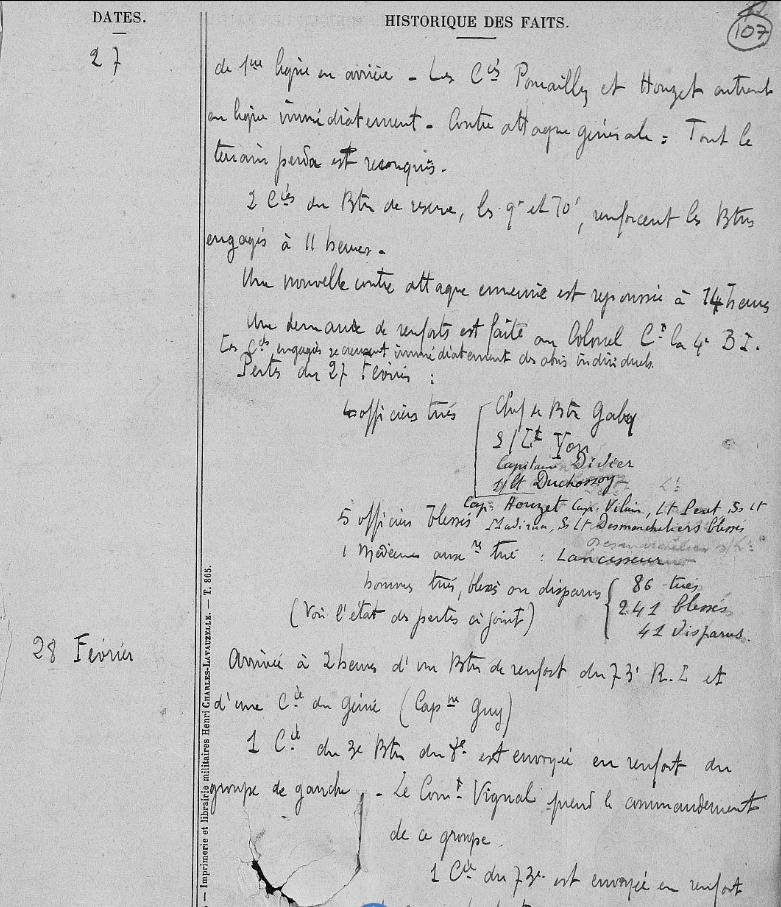 DATES.
HISTORIQUE DES FAITS.
107
27
de 1ère ligne en arrière - Les Cies Pomailly et Houzet entrent
en ligne immédiatement - Contre attaque générale : Tout le
terrain perdu est reconquis.
2 Cies du Btn de réserve, les 9e et 10e, renforcent les Btns
engagés à 11 heures -
Une nouvelle contre attaque ennemie est repoussée à 14 heures
Une demande de renforts est faite au Colonel Ct la 4e B I.
Les Cies engagées se creusent immédiatement des abris individuels.
Pertes du 27 Février :
4 officiers tués
Chef de Btn Gaby
S/Lt Yon
Capitaine Didier
S/Lt Duchossoy
Cap. Houzet Cap. Vilain, Lt Peut, Ss Lt
5 officiers blessés Ss Lt Desmarcheliers blessés
1 Médecin auxre tué : Lancesseur
hommes tués, blessés ou disparus
86 tués
241 blessés
41 disparus.
(Voir l'état des pertes ci joint)
28 Février
Arrivée à 2 heures d'un Btn de renfort du 73e R.I et
d'une Cie du Génie (Capne Guy)
1 Cie du 3e Btn du 8e est envoyée en renfort du
groupe de gauche - Le Comt Vignal prend le commandement
de ce groupe.
1 Cie du 73e est envoyée en renfort
— Imprimerie et librairie militaires Henri CHARLES-LAVAUZELLE. — T. 865.